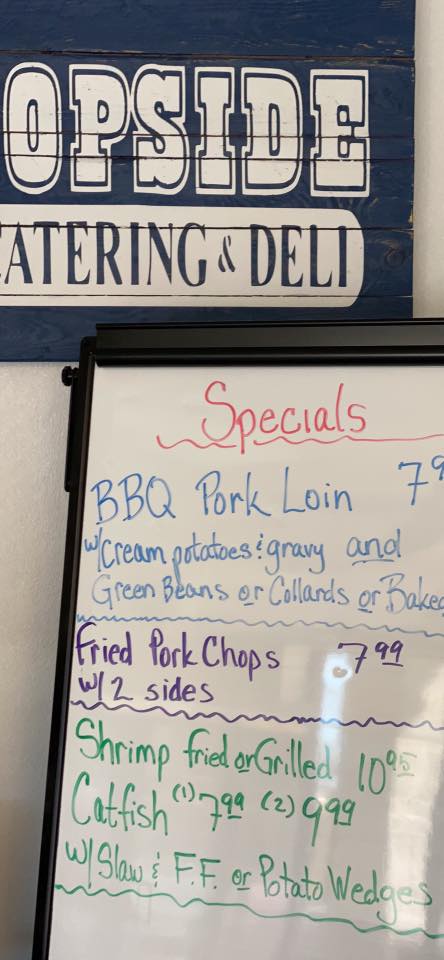 OPSIDE
CATERING & DELI
Specials
BBQ Pork Loin 79
w/Cream potatoes & gravy and
Green Beans or Collards or Baked
Fried Pork Chops 7.99
w/ 2 sides
Shrimp fried or Grilled 10 95
Catfish (1) 7 99 (2) 9 99
w/ Slaw & F.F. or Potato Wedges